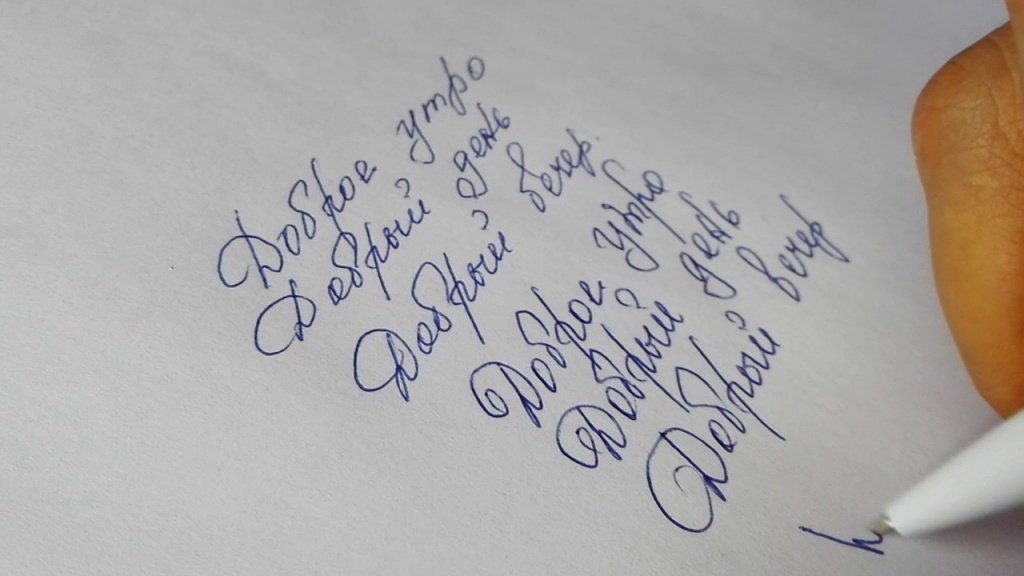 Доброе утро
Добрый день
Добрый вечер.
Доброе утро
Добрый день
Добрый вечер